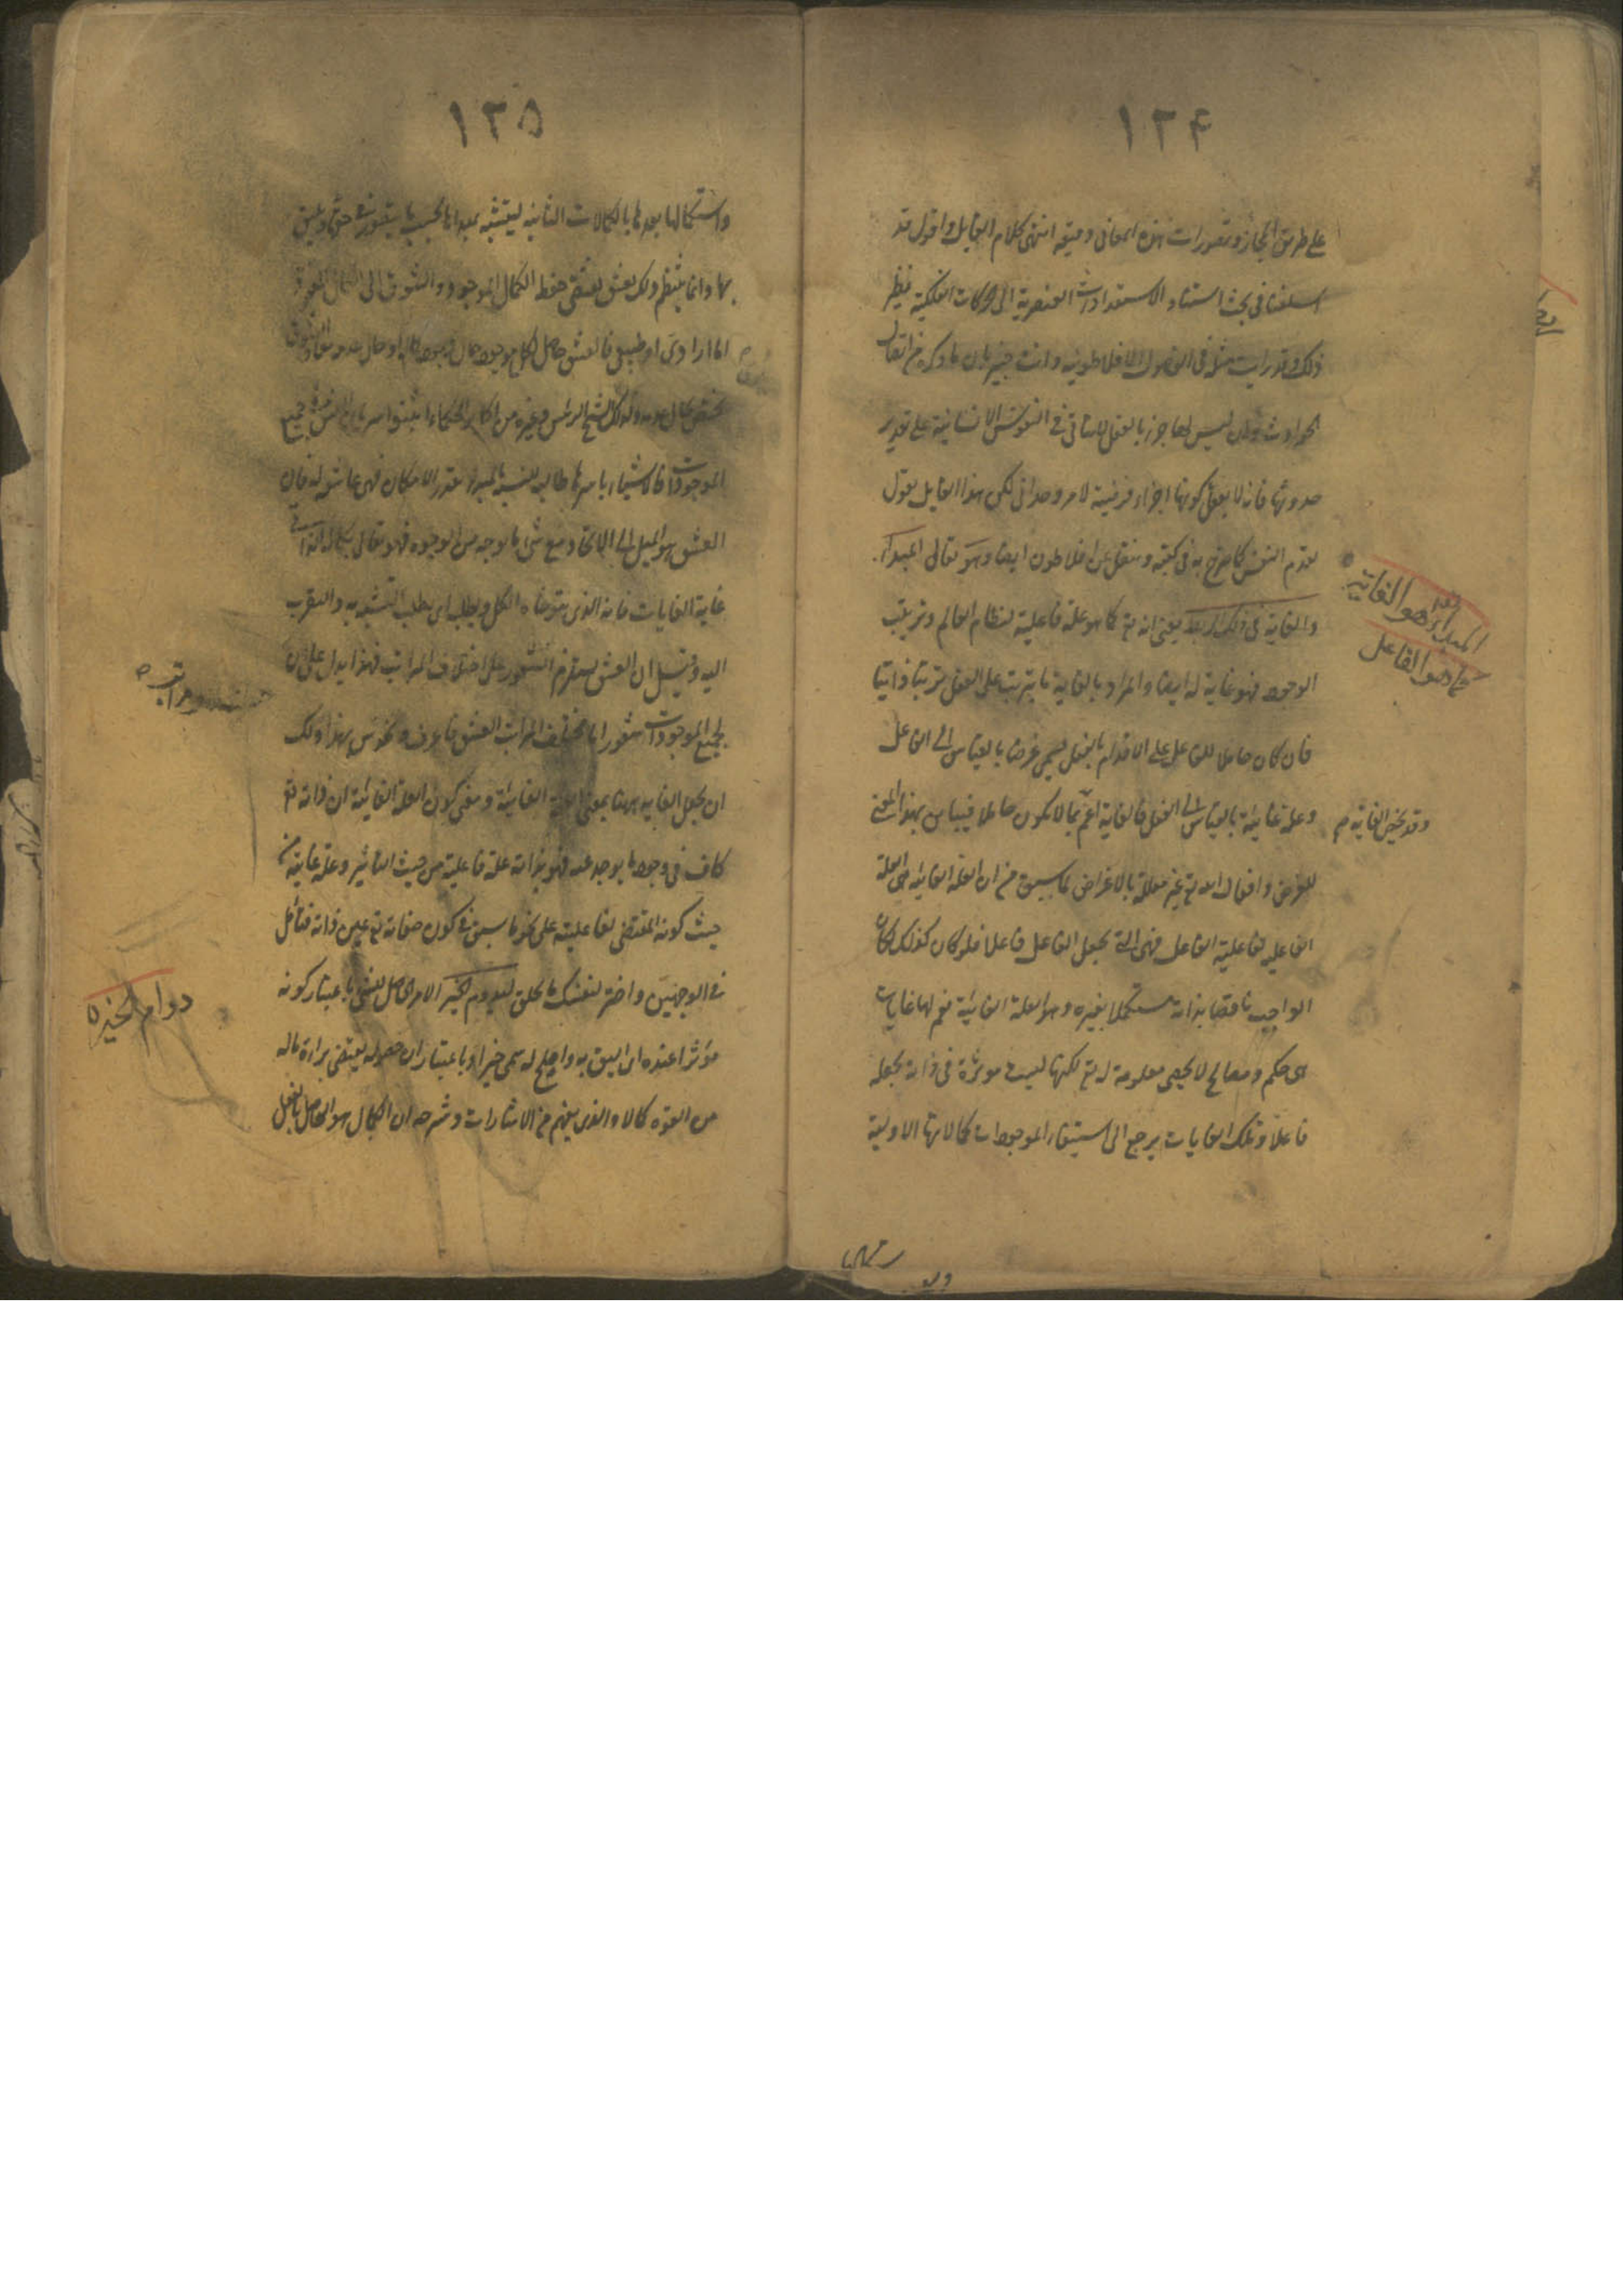 ١٢٤
على طريق المجاز وتصورات هذه المعانى دقيقة انتهى كلام القايل واقول قد
اسلفنا فى بحث استناد الاستعدادات العنصرية الى الحركات الفلكية نظير
ذلك وقد رايت مثله فى الاصول الافلاطونية وانت خبير بان ما ذكره من اتصال
الحوادث وان ليس لها جزء بالفعل لا يتاتى فى النفوس الانسانية على تقدير
حدوثها فانه لا يعقل كونها اجزاء فرضية لامر وحدانى لكن هذا القايل يقول
بقدم النفس كما صرح به فى كتبه وينقل عن افلاطون ايضا وهو تعالى المبدأ
والغاية فى ذلك كله يعنى انه تع كما هو علة فاعلية لنظام العالم وترتيب
الوجود فهو غاية له ايضا والمراد بالغاية ما يترتب على الفعل ترتبا ذاتيا
فان كان حاملا للفاعل على الاقدام بالفعل يسمى غرضا بالقياس الى الفاعل
وعلة غائية بالقياس الى الفعل فالغاية اعم مما لا يكون حاملا فيباين بهذا المعنى
للغرض وافعال الله تع غير معللة بالاغراض لما سبق من ان العلة الغائية هى العلة
الفاعلية لفاعلية الفاعل فهى التى تجعل الفاعل فاعلا فلو كان كذلك لكان
الواجب ناقصا بذاته مستكملا بغيره وهو العلة الغائية نعم لها غايات
اى حكم ومصالح لا تحصى معلومة له تع لكنها ليست موثرة فى ذاته بجعله
فاعلا وتلك الغايات يرجع الى استيفاء الموجودات كمالاتها الاولية
المبدأ هو الغاية
كما هو الفاعل
وقد يخص الغاية م
١٢٥
واستكمالها بعدها بالكمالات الثانية ليتشبه بمبداها بحسب ما يتصور فى حقها ويليق
بها وانما ينتظم ذلك بعشق يقتضى حفظ الكمال الموجود والشوق الى الكمال المفقود
اما ارادى او طبيعى فالعشق حاصل
الموجودات فالاشياء باسرها طالبة للتشبه بالمبدأ بقدر الامكان فهى عاشقة له فان
العشق هو الميل الى الاتحاد مع شئ ما بوجه من الوجوه فهو تعالى بكماله الذاتى
غاية الغايات فانه الذى يتوخاه الكل ويطلب اى يطلب التشبه به والتقرب
اليه وقيل ان العشق يستلزم الشعور على اختلاف المراتب فهذا يدل على ان
لجميع الموجودات شعورا ما بحسب اختلاف مراتب العشق فاعرف وتحدس بهذا ولك
ان تجعل الغاية ههنا بمعنى العلة الغائية ومعنى كونه العلة الغائية ان ذاته تع
كاف فى وجود ما يوجد عنه فهو بذاته علة فاعلية من حيث التاثير وعلة غائية من
حيث كونه المقتضى لفاعليته على نحو ما سبق فى كون صفاته تع عين ذاته فتامل
فى الوجهين واختر لنفسك ما يحلو ليدوم الخير الامر الحاصل للشئ باعتبار كونه
مؤثرا عنده اى اليق به واصلح له يسمى خيرا وباعتبار ان حصوله يقتضى براءة ماله
من القوة كمالا والذى يفهم من الاشارات وشرحه ان الكمال هو الحاصل بالفعل
دوام الخير